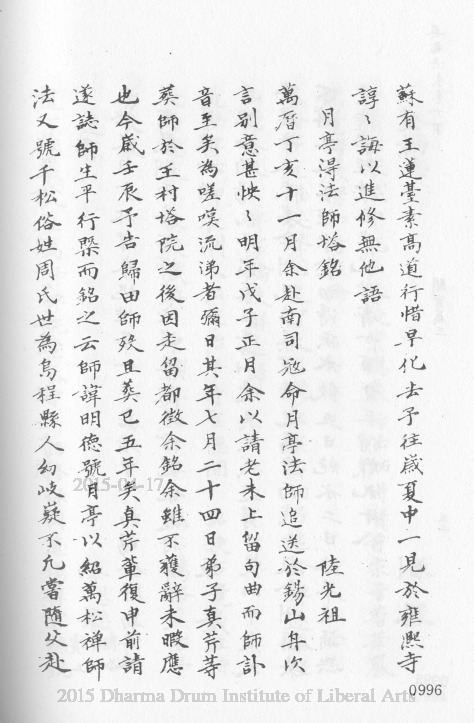 蘇有王蓮臺素高道行惜早化去予往歲夏中一見於雍熙寺
諄〻誨以進修無他語
月亭得法師塔銘　陸光祖
萬曆丁亥十一月余赴南司寇命月亭法師追送於錫山舟次
言別意甚怏〻明年戊子正月余以請老未上留句曲而師訃
音至矣為嗟嘆流涕者彌日其年七月二十四日弟子真芹等
葵師於王村塔院之後因走留都徵余銘余雖不獲辭未暇應
也今歲壬辰予告歸田師歿且葵已五年矣真芹輩復申前請
遂誌師生平行槩而銘之云師諱明德號月亭以紹萬松禪師
法又號千松俗姓周氏世為烏程縣人幼岐嶷不凡嘗随父赴
2015-04-17
0996
2015 Dharma Drum Institute of Liberal Arts